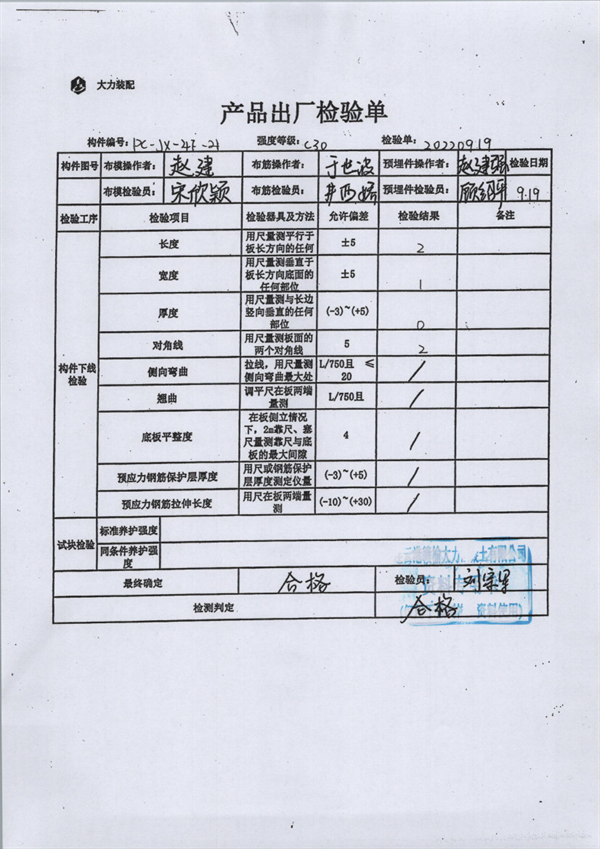 大力装配
产品出厂检验单
构件编号: PC-JX-4F-21 强度等级: C30 检验单: 20220919
构件图号 布模操作者: 赵建 布筋操作者: 于世波 预埋件操作者: 赵建强 检验日期
布模检验员: 宋欣颖 布筋检验员: 预埋件检验员: 9.19
检验工序 检验项目 检验器具及方法 允许偏差 检验结果 备注
构件下线检验
长度 用尺量测平行于板长方向的任何 ±5 2
宽度 用尺量测垂直于板长方向底面的任何部位 ±5 1
厚度 用尺量测与长边竖向垂直的任何部位 (-3)~(+5) 0
对角线 用尺量测板面的两个对角线 5 2
侧向弯曲 拉线,用尺量测侧向弯曲最大处 L/750且 ≤20 /
翘曲 调平尺在板两端量测 L/750且 /
底板平整度 在板侧立情况下,2m靠尺、塞尺量测靠尺与底板的最大间隙 4 /
预应力钢筋保护层厚度 用尺或钢筋保护层厚度测定仪量 (-3)~(+5) /
预应力钢筋拉伸长度 用尺在板两端量测 (-10)~(+30) /
试块检验 标准养护强度
同条件养护强度
最终确定 合格 检验员:
检测判定 合格